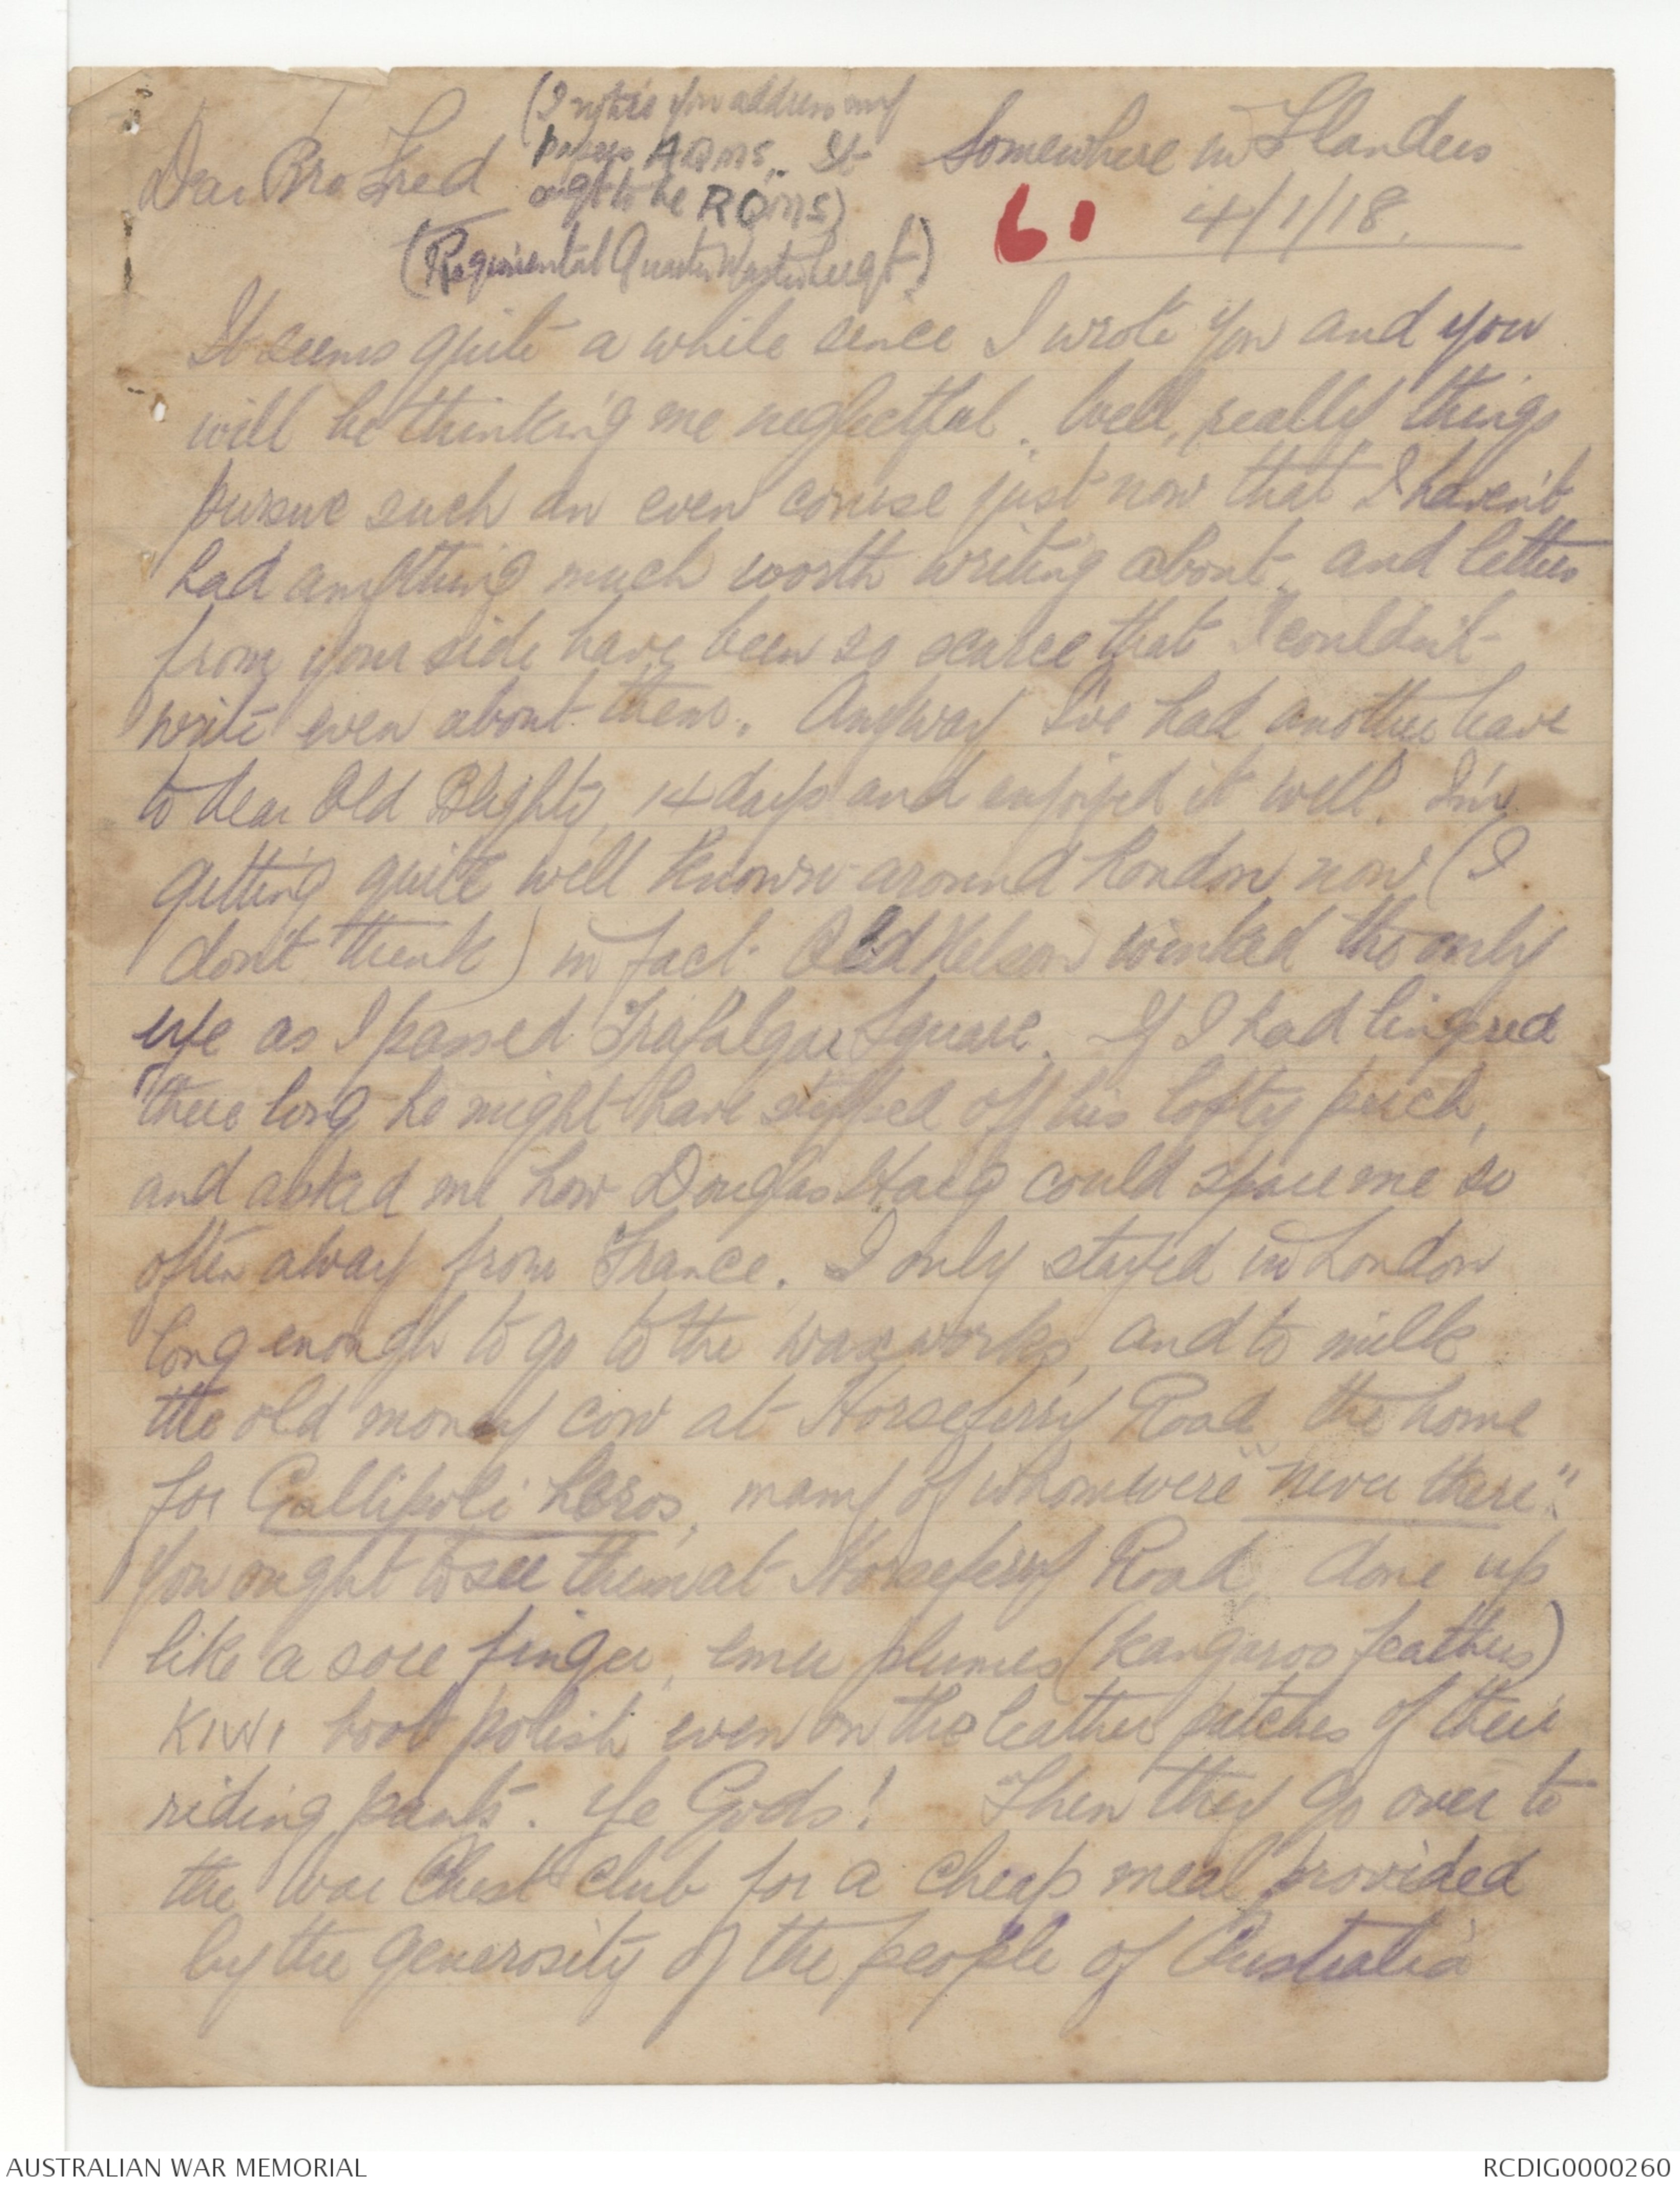 (I notice you address my
papers AQMS,, It
ought to be RQMS)
(Regimental Quarter Master Sergt)
Somewhere in Flanders
61 4/1/18.
Dear Bro Fred
It seems quite a while sence I wrote you and you
will be thinking me neglectful. Well, really things
pursue such an even course just now that I haven't
had anything much worth writing about, and letters
from your side have been so scarce that I couldn't
write even about them. Anyway I've had another leave
to dear Old Blighty, 14 days and enjoyed it well. I'm
getting quite well known around London now (I
don't think) in fact Old Nelson winked the only
eye as I passed Trafalgar Square. If I had lingered
there long he might have stepped off his lofty perch,
and asked me how Douglas Haig could spare me so
often away from France. I only stayed in London
long enough to go to the waxworks, and to milk
the old money cow at Horseferry Road, the home
for Gallipoli heros, many of whom were "never there".
You ought to see them at Horseferry Road, done up
like a sore finger, emu plumes (kangaroo feathers)
KIWI boot polish even on the leather patches of their
riding pants. Ye Gods! Then they go over to
the War Chest Club for a cheap meal provided
by the generosity of the people of Australia
AUSTRALIAN WAR MEMORIAL
RCDIG0000260